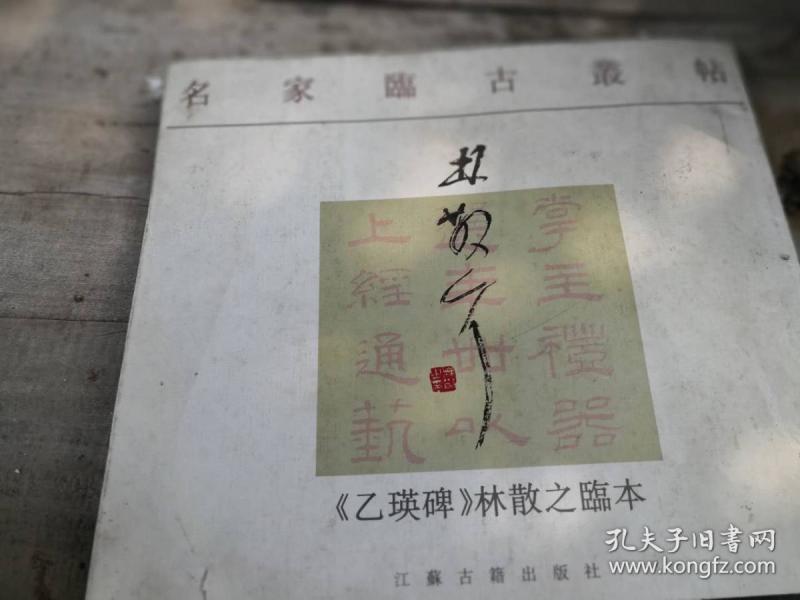 名家臨古叢帖
林散之
掌主禮器
年卌以
上經通藝
《乙瑛碑》林散之臨本
江蘇古籍出版社
孔夫子旧书网
www.kongfz.com